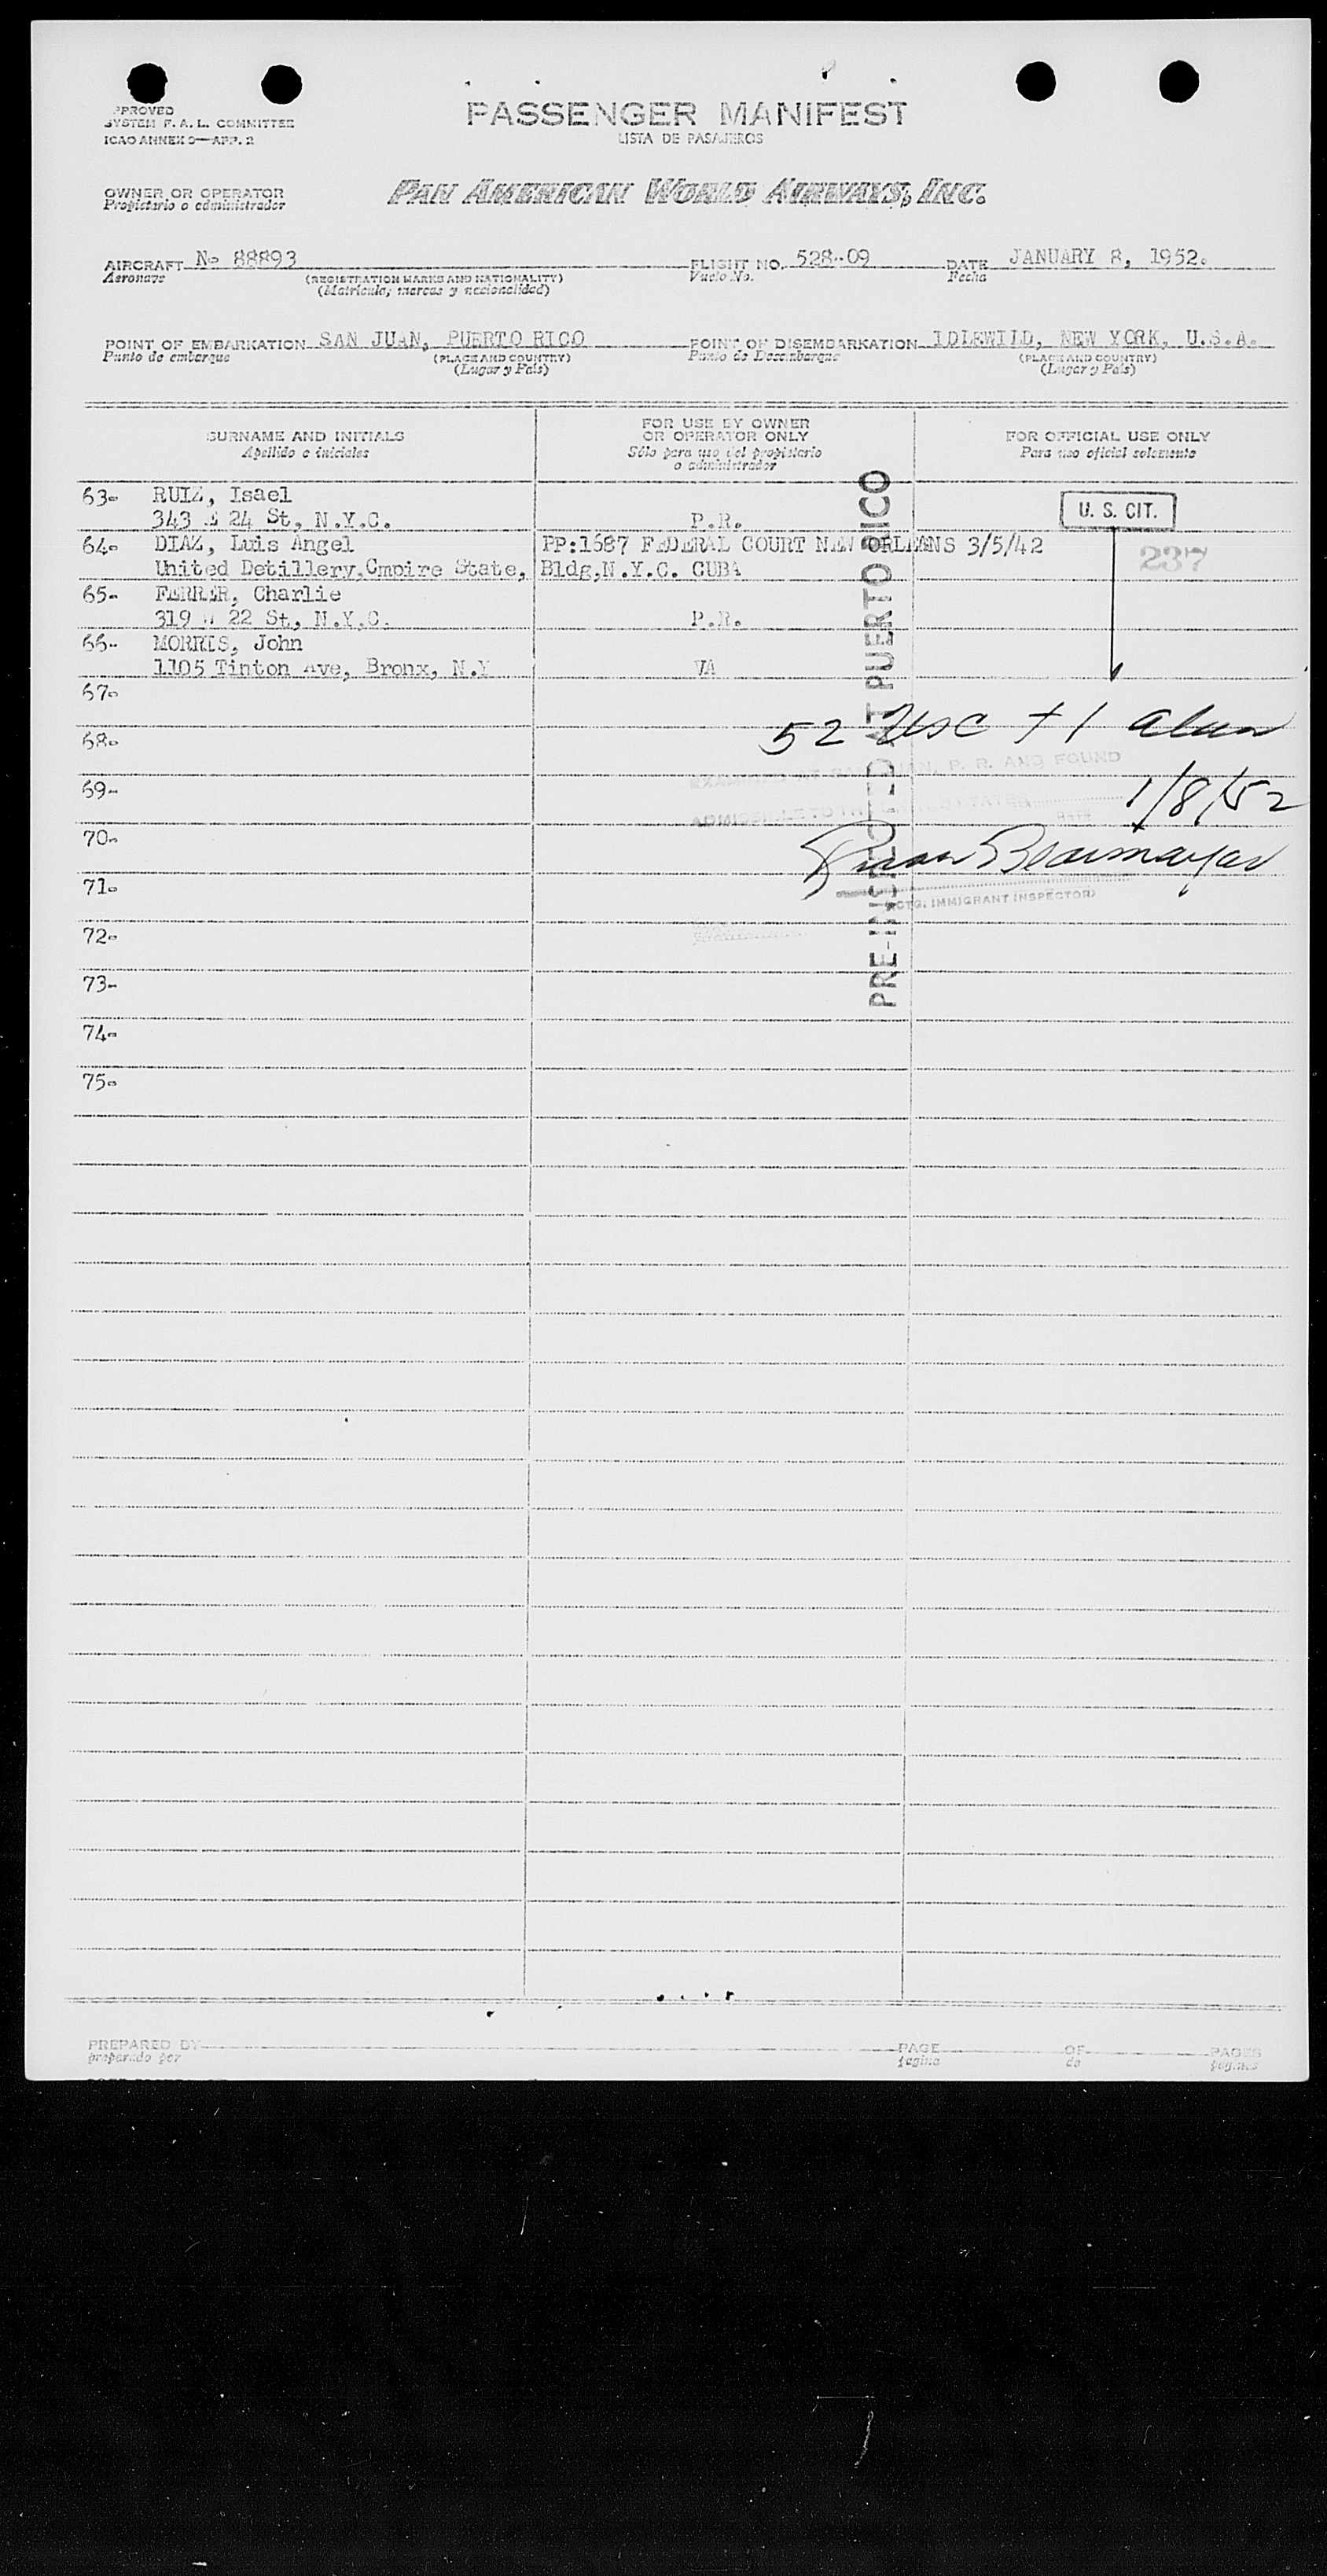 PPROVED
SYSTEM F. A. L. COMMITTEE
ICAO ANNEX 9—APP. 2
PASSENGER MANIFEST
LISTA DE PASAJEROS
OWNER OR OPERATOR
Propietario o administrador
PAN AMERICAN WORLD AIRWAYS, INC.
AIRCRAFT No 88893
Aeronave
(REGISTRATION MARKS AND NATIONALITY)
(Matricula, marcas y nacionalidad)
FLIGHT NO. 528-09
Vuelo No.
DATE JANUARY 8, 1952.
Fecha
POINT OF EMBARKATION SAN JUAN, PUERTO RICO
Punto de embarque
(PLACE AND COUNTRY)
(Lugar y País)
POINT OF DISEMBARKATION IDLEWILD, NEW YORK, U.S.A.
Punto de Desembarque
(PLACE AND COUNTRY)
(Lugar y País)
SURNAME AND INITIALS
Apellido e iniciales
FOR USE BY OWNER
OR OPERATOR ONLY
Sólo para uso del propietario
o administrador
FOR OFFICIAL USE ONLY
Para uso oficial solamente
63- RUIZ, Isael
343 E 24 St, N.Y.C. P.R.
U. S. CIT.
64- DIAZ, Luis Angel PP:1687 FEDERAL COURT NEW ORLEANS 3/5/42
237
United Detillery,Cmpire State, Bldg,N.Y.C. CUBA
65- FERRER, Charlie
319 W 22 St, N.Y.C. P.R.
66- MORRIS, John
1105 Tinton Ave, Bronx, N.Y VA
67-
52 USC + 1 alien
68-
EXAMINED AT SAN JUAN, P. R. AND FOUND
69-
1/8/52
ADMISSIBLE TO THE STATES
DATE
70-
71-
ACTG. IMMIGRANT INSPECTOR)
72-
73-
74-
75-
PRE-INSPECTED AT PUERTO RICO
PREPARED BY
preparado por
PAGE OF PAGES
página de páginas